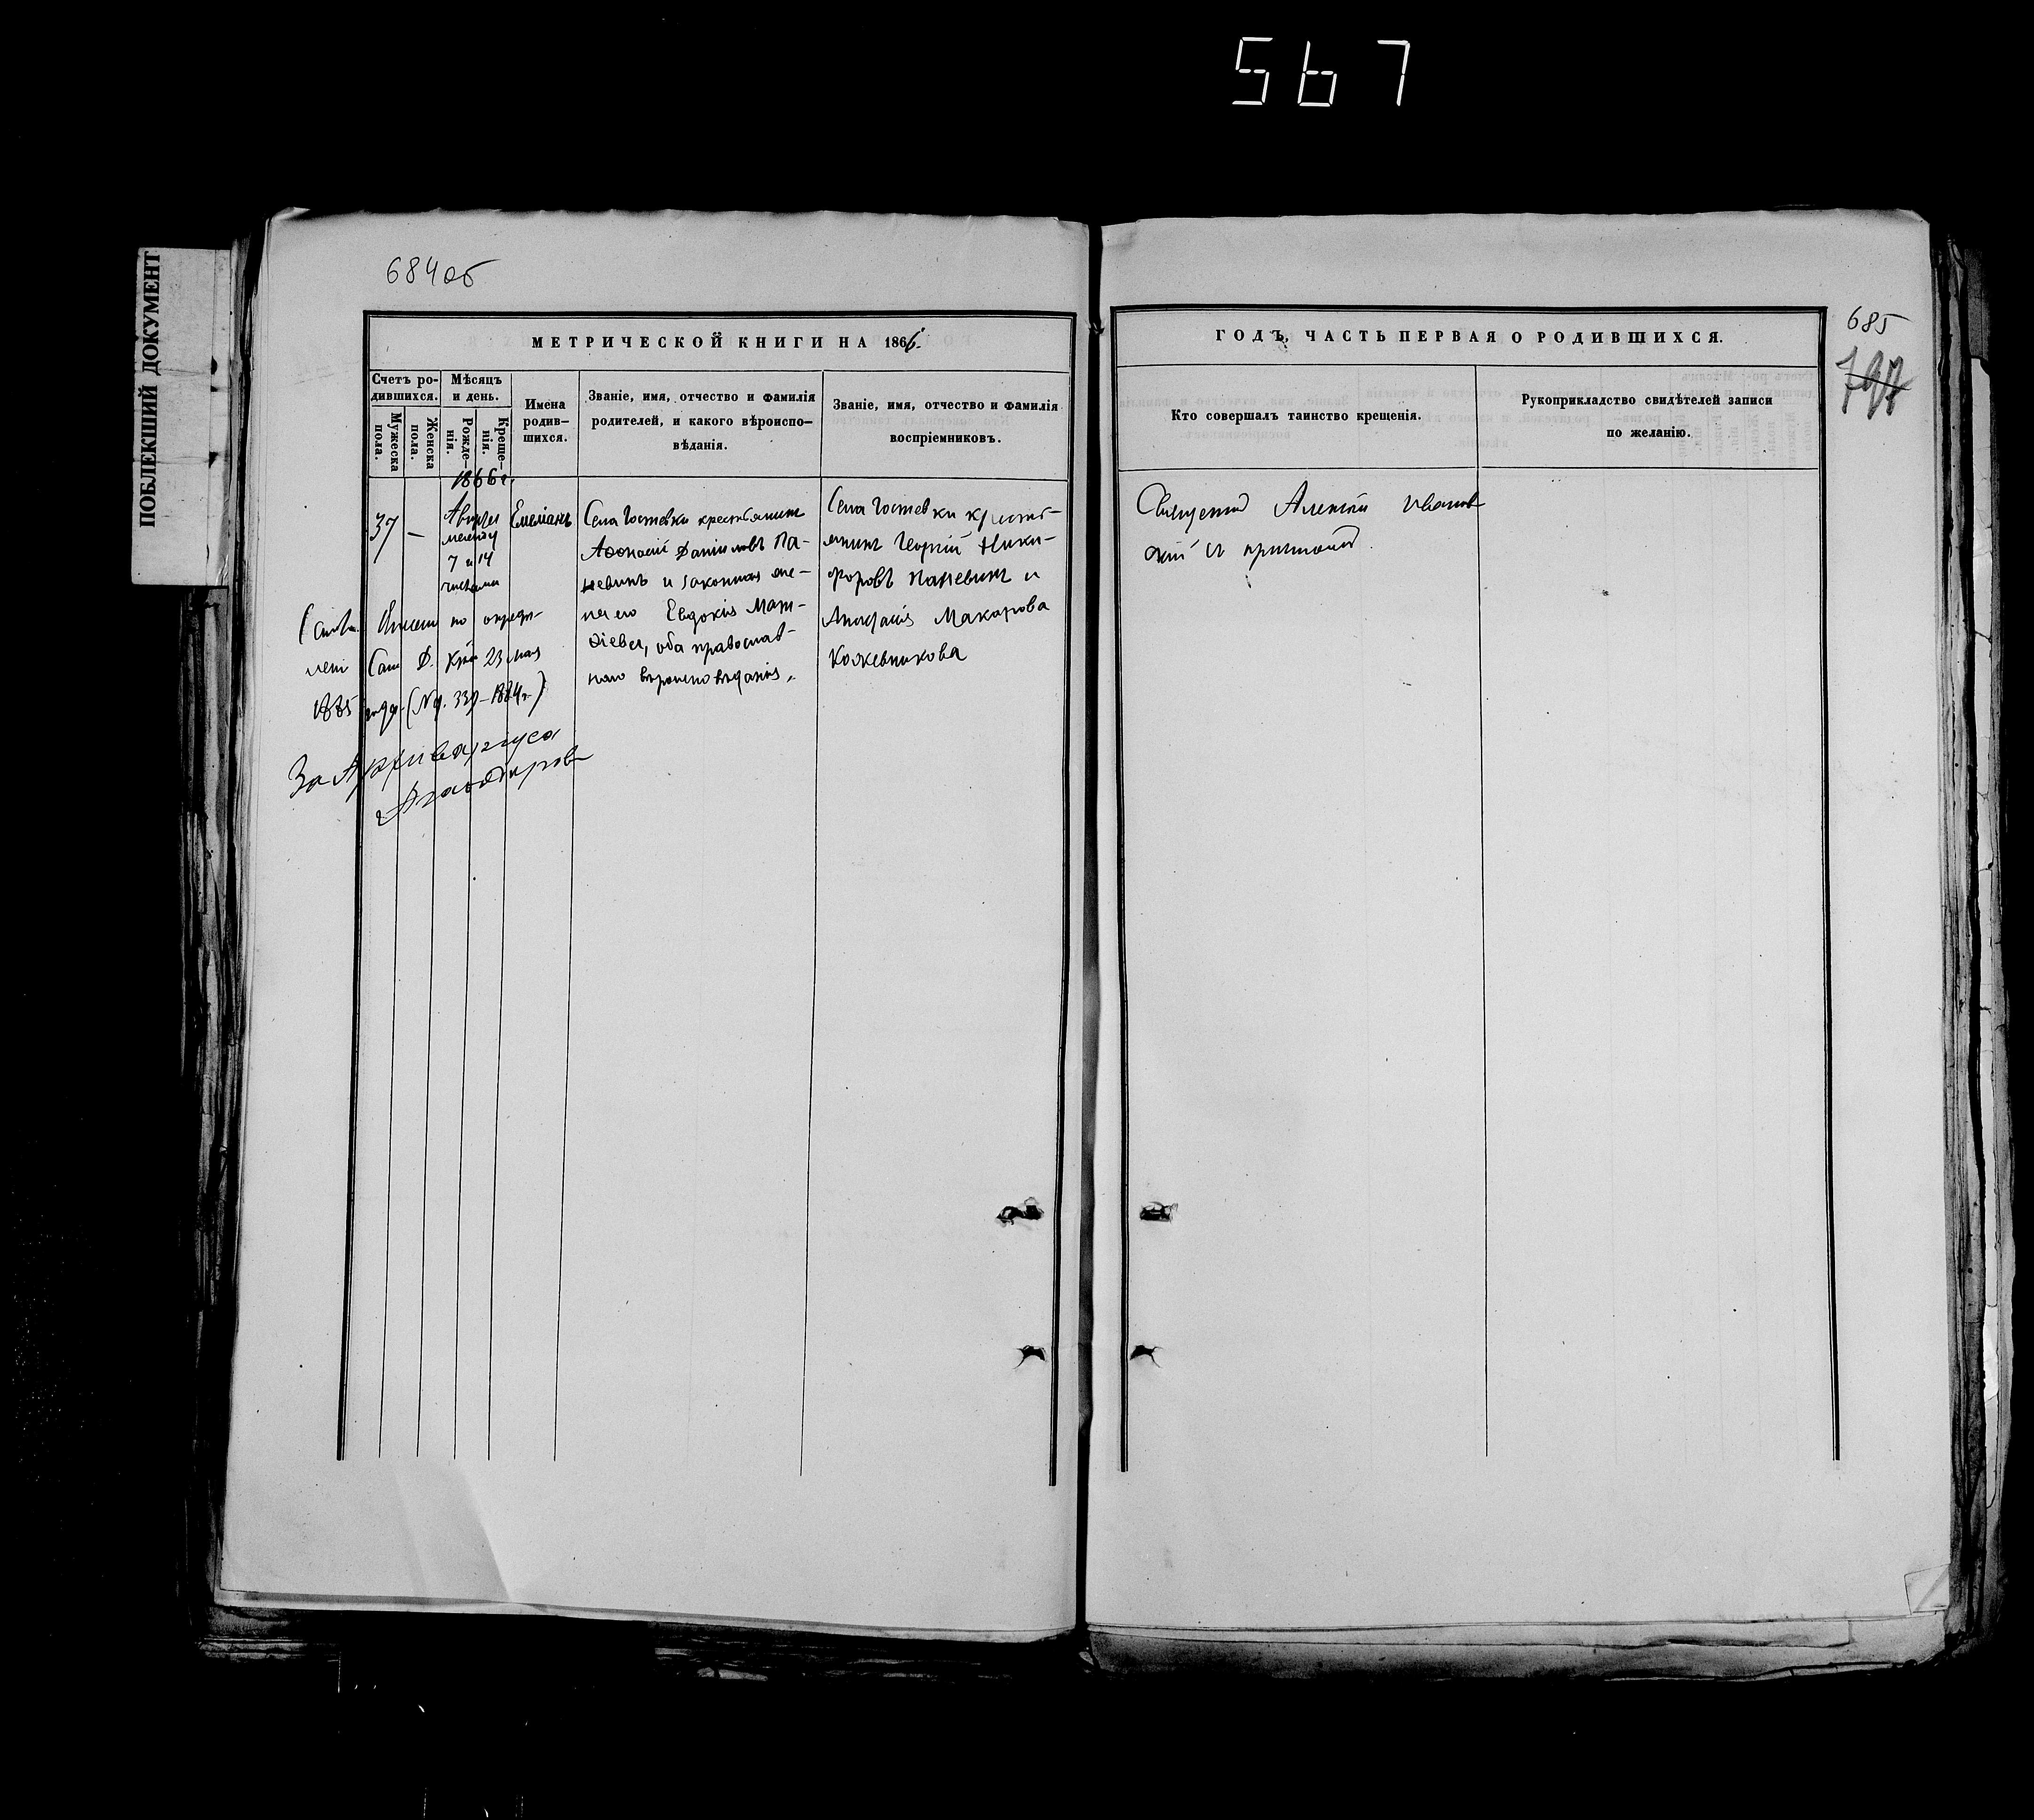 567
ПОБЛЕКШИЙ ДОКУМЕНТ
684об
МЕТРИЧЕСКОЙ КНИГИ НА 1866.
Счетъ ро-
дившихся.
Мужеска
пола.
Женска
пола.
Мѣсяцъ
и день.
Рожде-
нія.
Креще-
нія.
Имена
родив-
шихся.
Званіе, имя, отчество и фамилія
родителей, и какого вѣроиспо-
вѣданія.
Званіе, имя, отчество и фамилія
воспріемниковъ.
1866 г.
37 —
7 и 14
числами
Емеліанъ
Села Гостевки крестьянинъ
Аѳонасій Даніиловъ Па-
невинъ и законная же-
на его Евдокія Мат-
ѳіева, оба православ-
наго вѣроисповѣданія.
Села Гостевки кресть-
янинъ Георгій Ники-
форовъ Паневинъ и
Макарова
Кожевникова
по опредѣ-
леніи Сам. Д. 23 мая
1885 года (№ 339 – 1884 г.)
За Архиваріуса
685
ГОДЪ, ЧАСТЬ ПЕРВАЯ О РОДИВШИХСЯ.
Кто совершалъ таинство крещенія.
Рукоприкладство свидѣтелей записи
по желанію.
Алексій Иванов
скій съ причтомъ.